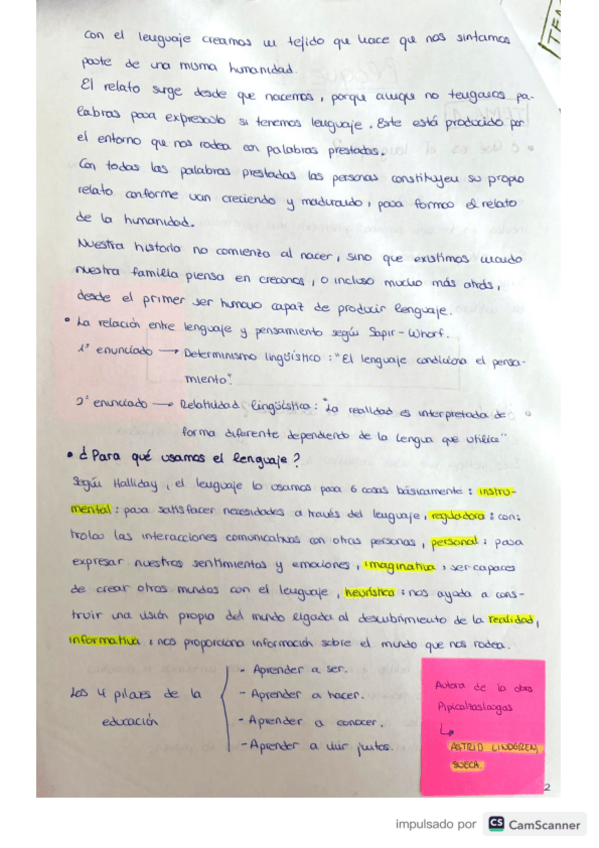 Con el lenguaje creamos un tejido que hace que nos sintamos
parte de una misma humanidad.
El relato surge desde que nacemos, porque aunque no tengamos pa-
labras para expresarlo si tenemos lenguaje. Este está producido por
el entorno que nos rodea con palabras prestadas.
Con todas las palabras prestadas las personas constituyen su propio
relato conforme van creciendo y madurando, para formar el relato
de la humanidad.
Nuestra historia no comienza al nacer, sino que existimos cuando
nuestra familia piensa en crearnos, o incluso mucho más atrás,
desde el primer ser humano capaz de producir lenguaje.
• La relación entre lenguaje y pensamiento según Sapir-Whorf.
1º enunciado → Determinismo lingüístico: "El lenguaje condiciona el pensa-
miento".
2º enunciado → Relatividad lingüística: "La realidad es interpretada de
forma diferente dependiendo de la lengua que utilice"
• ¿Para qué usamos el lenguaje?
Según Halliday, el lenguaje lo usamos para 6 cosas básicamente: instru-
mental: para satisfacer necesidades a través del lenguaje, reguladora: con-
trolar las interacciones comunicativas con otras personas, personal: para
expresar nuestros sentimientos y emociones, imaginativa, ser capaces
de crear otros mundos con el lenguaje, heurística: nos ayuda a cons-
truir una visión propia del mundo ligada al descubrimiento de la realidad,
informativa: nos proporciona información sobre el mundo que nos rodea.
Los 4 pilares de la
educación
- Aprender a ser.
- Aprender a hacer.
- Aprender a conocer.
- Aprender a vivir juntos.
Autora de la obra
Pipicalzaslargas
↳
ASTRID LINDGREN,
SUECA.
2
impulsado por CS CamScanner